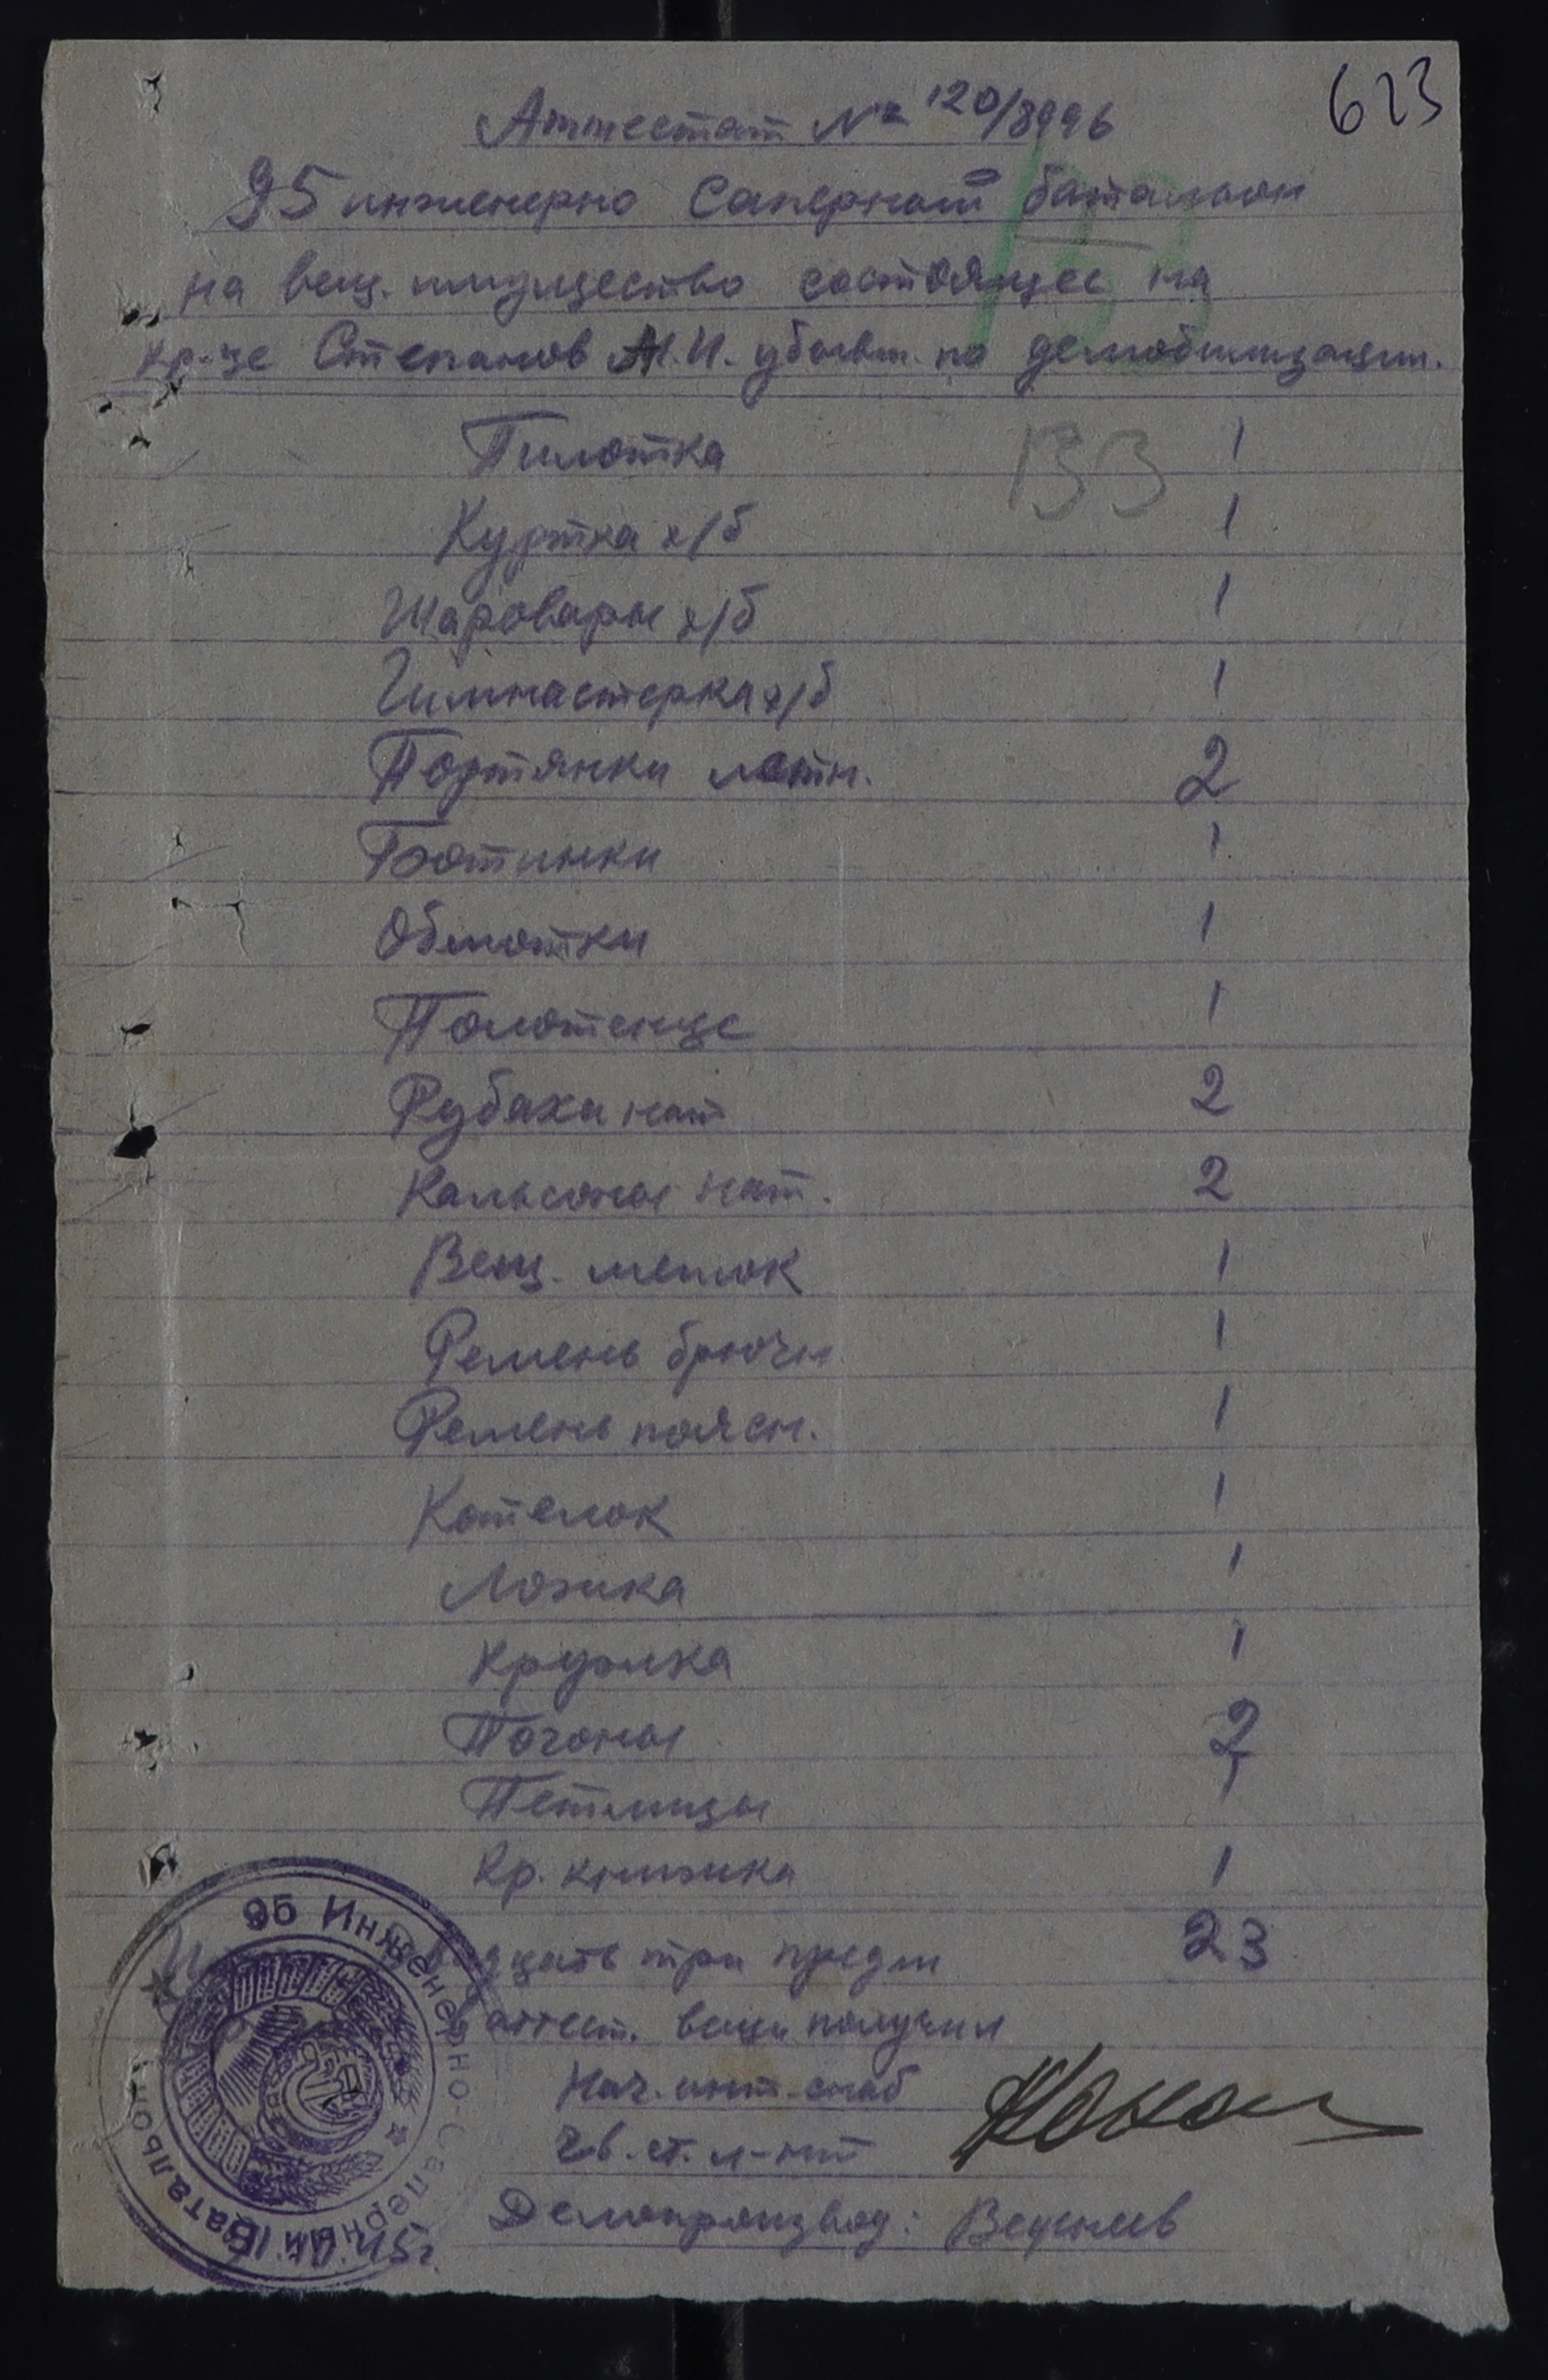 623
Аттестат № 120/8996
95 инженерно саперный батальон
на вещ. имущество состоящее на
кр-це Степанов М.И. убывш. по демобилизации.
133
Пилотка 1
133
Куртка х/б 1
Шаровары х/б 1
Гимнастерка х/б 1
Портянки летн. 2
Ботинки 1
Обмотки 1
Полотенце 1
Рубаха нат 2
Кальсоны нат. 2
Вещ. мешок 1
Ремень брючн 1
Ремень поясн. 1
Котелок 1
Ложка 1
Кружка 1
Погоны 2
Петлицы 1
Кр. книжка 1
двадцать три предм 23
аттест. вещи получил
Нач. инт. снаб
гв. ст. л-нт
Делопроизвод:
95 Инженерно-Саперный Батальон